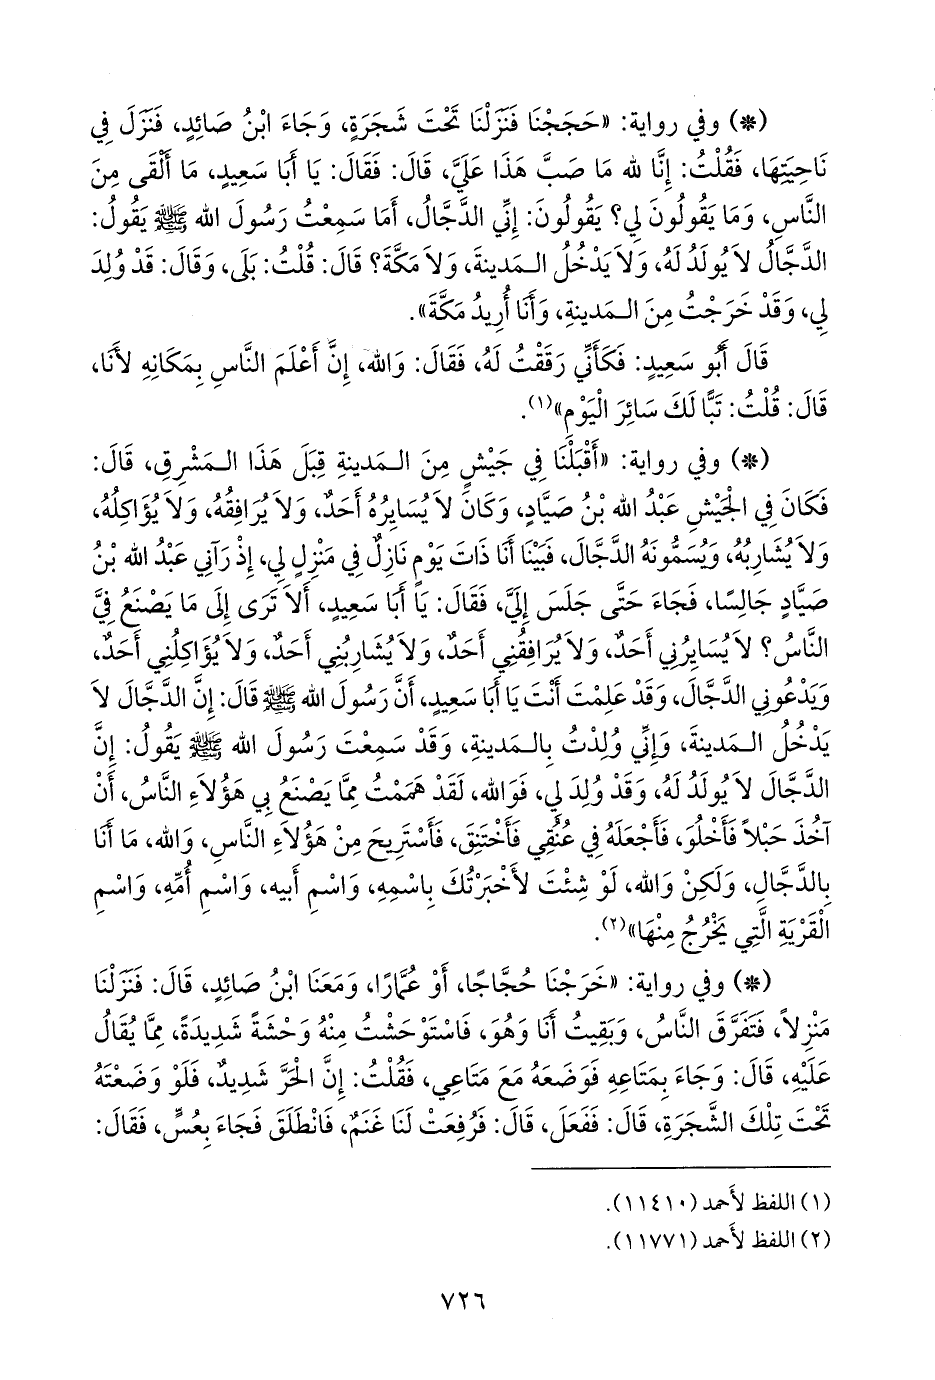 (*) وفي رواية: «حَجَجْنَا فَنَزَلْنَا تَحْتَ شَجَرَةٍ، وَجَاءَ ابْنُ صَائِدٍ، فَنَزَلَ فِي
نَاحِيَتِهَا، فَقُلْتُ: إِنَّا لله مَا صَبَّ هَذَا عَلَيَّ، قَالَ: فَقَالَ: يَا أَبَا سَعِيدٍ، مَا أَلْقَى مِنَ
النَّاسِ، وَمَا يَقُولُونَ لِي؟ يَقُولُونَ: إِنِّي الدَّجَّالُ، أَمَا سَمِعْتُ رَسُولَ الله ﷺ يَقُولُ:
الدَّجَّالُ لاَ يُولَدُ لَهُ، وَلاَ يَدْخُلُ الـمَدينةَ، وَلاَ مَكَّةَ؟ قَالَ: قُلْتُ: بَلَى، وَقَالَ: قَدْ وُلِدَ
لِي، وَقَدْ خَرَجْتُ مِنَ الـمَدينةِ، وَأَنَا أُرِيدُ مَكَّةَ».
قَالَ أَبُو سَعِيدٍ: فَكَأَنِّي رَقَقْتُ لَهُ، فَقَالَ: وَالله، إِنَّ أَعْلَمَ النَّاسِ بِمَكَانِهِ لأَنَا،
قَالَ: قُلْتُ: تَبًّا لَكَ سَائِرَ الْيَوْمِ»(١).
(*) وفي رواية: «أَقْبَلْنَا فِي جَيْشٍ مِنَ الـمَدينةِ قِبَلَ هَذَا الـمَشْرِقِ، قَالَ:
فَكَانَ فِي الْجَيْشِ عَبْدُ الله بْنُ صَيَّادٍ، وَكَانَ لاَ يُسَايِرُهُ أَحَدٌ، وَلاَ يُرَافِقُهُ، وَلاَ يُؤَاكِلُهُ،
وَلاَ يُشَارِبُهُ، وَيُسَمُّونَهُ الدَّجَّالَ، فَبَيْنَا أَنَا ذَاتَ يَوْمٍ نَازِلٌ فِي مَنْزِلٍ لِي، إِذْ رَآنِي عَبْدُ الله بْنُ
صَيَّادٍ جَالِسًا، فَجَاءَ حَتَّى جَلَسَ إِلَيَّ، فَقَالَ: يَا أَبَا سَعِيدٍ، أَلاَ تَرَى إِلَى مَا يَصْنَعُ فِيَّ
النَّاسُ؟ لاَ يُسَايِرُنِي أَحَدٌ، وَلاَ يُرَافِقُنِي أَحَدٌ، وَلاَ يُشَارِبُنِي أَحَدٌ، وَلاَ يُؤَاكِلُنِي أَحَدٌ،
وَيَدْعُونِي الدَّجَّالَ، وَقَدْ عَلِمْتَ أَنْتَ يَا أَبَا سَعِيدٍ، أَنَّ رَسُولَ الله ﷺ قَالَ: إِنَّ الدَّجَّالَ لاَ
يَدْخُلُ الـمَدينةَ، وَإِنِّي وُلِدْتُ بِالـمَدينةِ، وَقَدْ سَمِعْتَ رَسُولَ الله ﷺ يَقُولُ: إِنَّ
الدَّجَّالَ لاَ يُولَدُ لَهُ، وَقَدْ وُلِدَ لِي، فَوَالله، لَقَدْ هَمَمْتُ مِمَّا يَصْنَعُ بِي هَؤُلاَءِ النَّاسُ، أَنْ
آخُذَ حَبْلاً فَأَخْلُوَ، فَأَجْعَلَهُ فِي عُنُقِي فَأَخْتَنِقَ، فَأَسْتَرِيحَ مِنْ هَؤُلاَءِ النَّاسِ، وَالله، مَا أَنَا
بِالدَّجَّالِ، وَلَكِنْ وَالله، لَوْ شِئْتَ لأَخْبَرْتُكَ بِاسْمِهِ، وَاسْمِ أَبيه، وَاسْمِ أُمِّهِ، وَاسْمِ
الْقَرْيَةِ الَّتِي يَخْرُجُ مِنْهَا»(٢).
(*) وفي رواية: «خَرَجْنَا حُجَّاجًا، أَوْ عُمَّارًا، وَمَعَنَا ابْنُ صَائِدٍ، قَالَ: فَنَزَلْنَا
مَنْزِلاً، فَتَفَرَّقَ النَّاسُ، وَبَقِيتُ أَنَا وَهُوَ، فَاسْتَوْحَشْتُ مِنْهُ وَحْشَةً شَدِيدَةً، مِمَّا يُقَالُ
عَلَيْهِ، قَالَ: وَجَاءَ بِمَتَاعِهِ فَوَضَعَهُ مَعَ مَتَاعِي، فَقُلْتُ: إِنَّ الْحَرَّ شَدِيدٌ، فَلَوْ وَضَعْتَهُ
تَحْتَ تِلْكَ الشَّجَرَةِ، قَالَ: فَفَعَلَ، قَالَ: فَرُفِعَتْ لَنَا غَنَمٌ، فَانْطَلَقَ فَجَاءَ بِعُسٍّ، فَقَالَ:
(١) اللفظ لأَحمد (١١٤١٠).
(٢) اللفظ لأَحمد (١١٧٧١).
٧٢٦